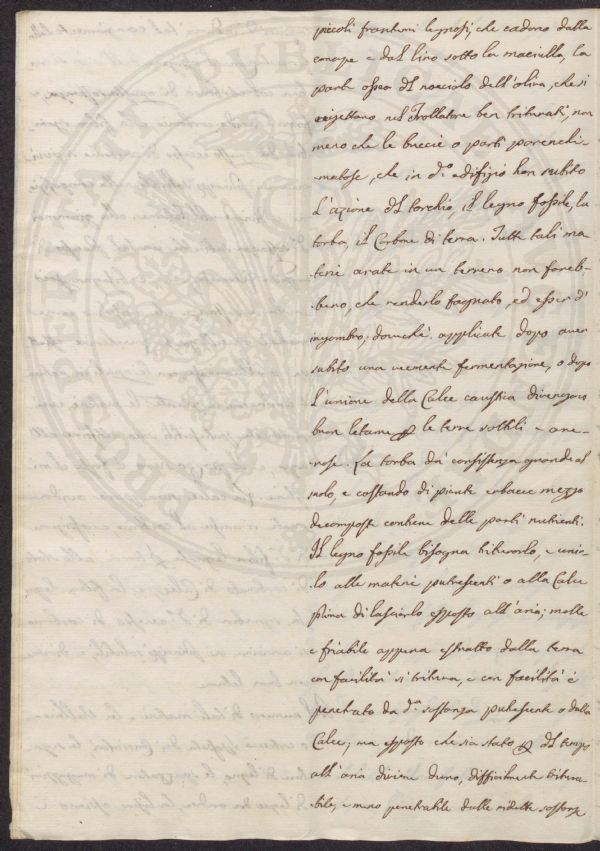 piccoli frantumi legnosi, che cadono dalla
canape e dal lino sotto la maciulla, la
parte ossea del nocciolo dell'oliva, che si
rigettano nel Frollatore ben triturati, non
meno che le buccie o parti parenchi-
matose, che in d.º edifizio han subito
l'azione del torchio, il legno fossile, la
torba, il Carbone di terra. Tutte tali ma
terie arate in un terreno non fareb-
bero, che renderlo fognato, ed esser d'
ingombro; dovechè applicate dopo aver
subito una vemente fermentazione, o dopo
l'unione della Calce caustica divengono
buon letame per le terre sottili e are-
nose. La torba dà consistenza grande al
suolo, e costando di piante erbacee mezzo
decomposte contiene delle parti nutrienti.
Il legno fossile bisogna triturarlo, e unir-
lo alle materie putrescenti o alla Calce
prima di lasciarlo esposto all'aria; molle
e friabile appena estratto dalla terra
con facilità si tritura, e con facilità è
penetrato da d.ª sostanza putrescente o dalla
Calce; ma esposto che sia stato per del tempo
all'aria diviene duro, difficilmente tritura-
bile, e meno penetrabile dalle ridette sostanze